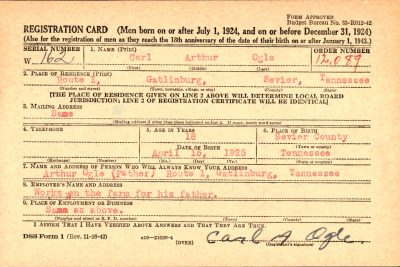 Form Approved
Budget Bureau No. 33-R012-42
REGISTRATION CARD (Men born on or after July 1, 1924, and on or before December 31, 1924)
(Also for the registration of men as they reach the 18th anniversary of the date of their birth on or after January 1, 1943.)
SERIAL NUMBER 1. NAME (Print) ORDER NUMBER
W 162 Carl Arthur Ogle 12,089
(First) (Middle) (Last)
2. PLACE OF RESIDENCE (Print)
Route 1, Gatlinburg, Sevier, Tennessee
(Number and street) (Town, township, village, or city) (County) (State)
[THE PLACE OF RESIDENCE GIVEN ON LINE 2 ABOVE WILL DETERMINE LOCAL BOARD
JURISDICTION; LINE 2 OF REGISTRATION CERTIFICATE WILL BE IDENTICAL]
3. MAILING ADDRESS
Same
(Mailing address if other than place indicated on line 2. If same, insert word same)
4. TELEPHONE 5. AGE IN YEARS 6. PLACE OF BIRTH
18 Sevier County
DATE OF BIRTH (Town or county)
April 10, 1925 Tennessee
(Exchange) (Number) (Mo.) (Day) (Yr.) (State or country)
7. NAME AND ADDRESS OF PERSON WHO WILL ALWAYS KNOW YOUR ADDRESS
Arthur Ogle (Father) Route 1, Gatlinburg, Tennessee
8. EMPLOYER'S NAME AND ADDRESS
Works on the farm for his father.
9. PLACE OF EMPLOYMENT OR BUSINESS
Same as above.
(Number and street or R. F. D. number) (Town) (County) (State)
I AFFIRM THAT I HAVE VERIFIED ABOVE ANSWERS AND THAT THEY ARE TRUE.
DSS Form 1 (Rev. 11-16-42) (OVER) Carl A Ogle
(Registrant's signature)